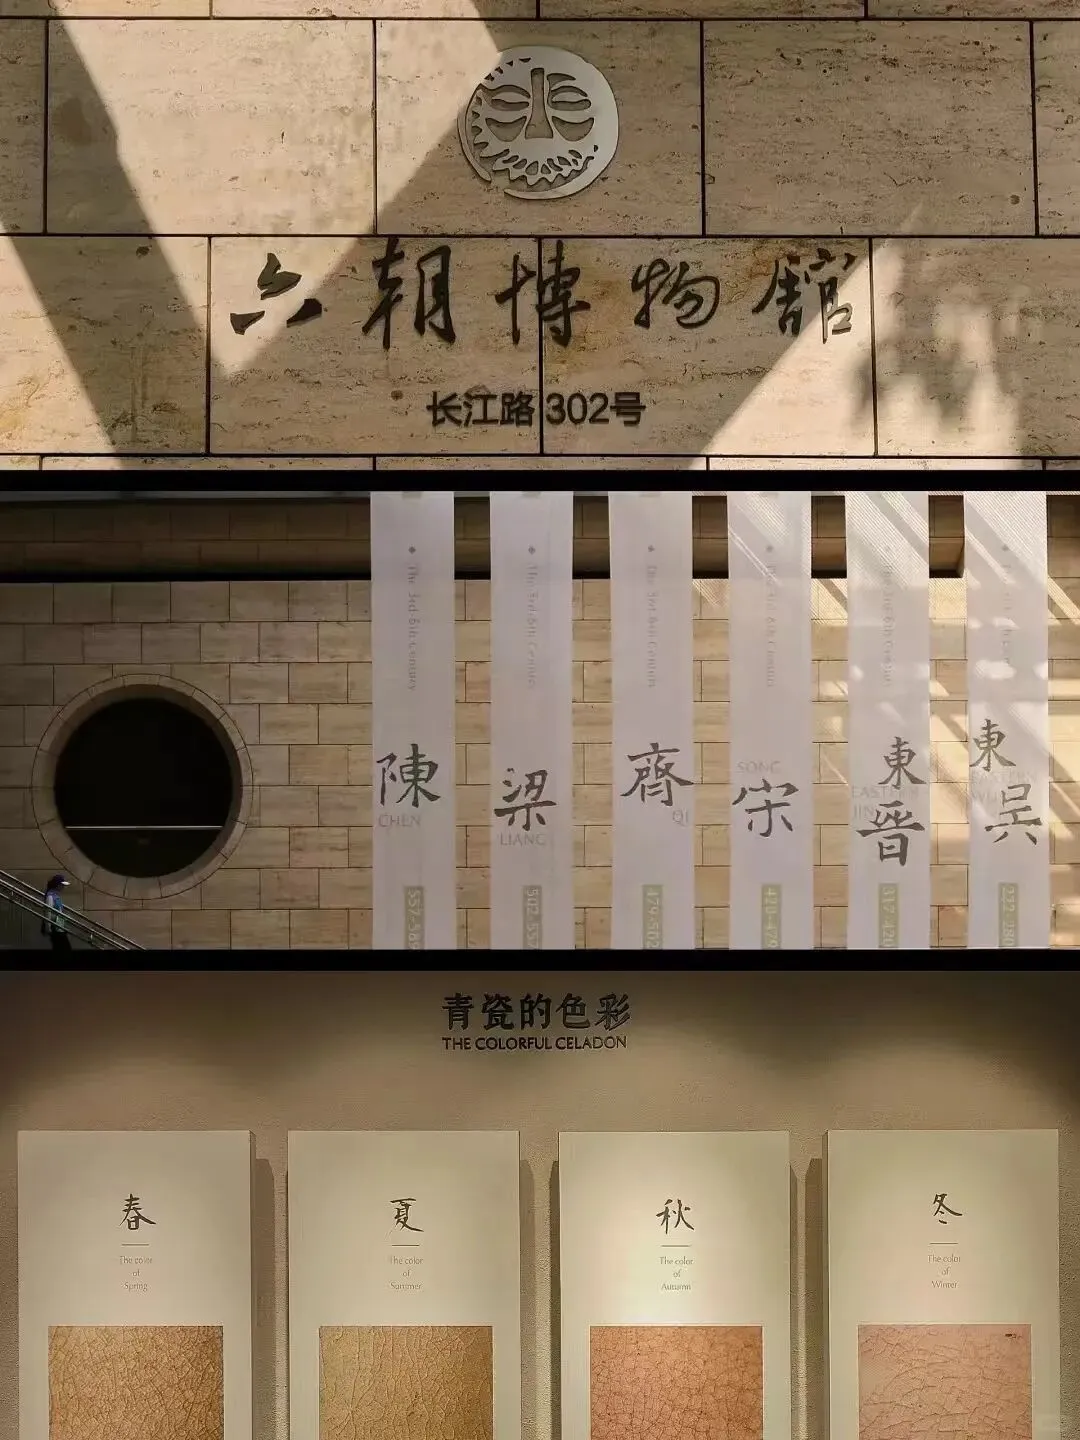 六朝博物館
长江路 302号
The 3rd-6th Century
陳
CHEN
557-589
The 3rd-6th Century
梁
LIANG
502-557
The 3rd-6th Century
齊
QI
479-502
The 3rd-6th Century
宋
SONG
420-479
The 3rd-6th Century
東晉
EASTERN
JIN
317-420
東吳
EASTERN
WU
青瓷的色彩
THE COLORFUL CELADON
春
The color
of
Spring
夏
The color
of
Summer
秋
The color
of
Autumn
冬
The color
of
Winter